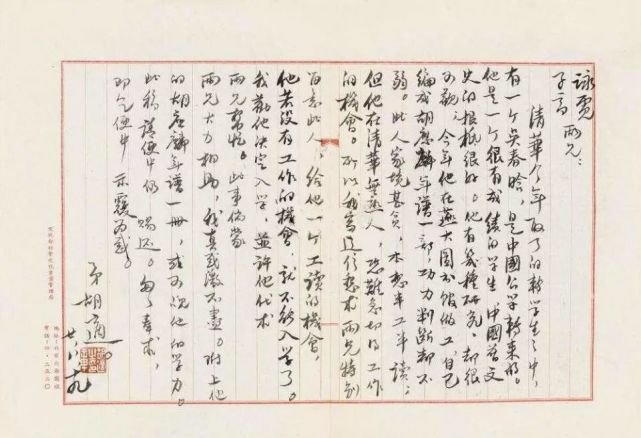 詠霓
子高 兩兄:
清華今年取了的轉學生之中,
有一个吳春晗,是中國公學轉來的。
他是一个很有成績的学生,中國旧文
史的根柢很好。他有幾種研究,都很
可觀。今年他在燕大圖书馆做工,自己
編成胡應麟年譜一部,功力判斷都不
弱。此人家境甚貧,本想半工半讀;
但他在清華無熟人,恐難急切得工作
的機會。所以我寫這信懇求兩兄特別
留意此人,給他一个工讀的機會,
他若沒有工作的機會,就不能入学了。
我勸他決定入学,並許他代求
兩兄幫忙。此事倘蒙
兩兄大力相助,我真感激不盡。附上他
的胡應麟年譜一冊,或可覘他的学力。
此稿請便中仍賜還。匆匆奉求,
即乞便中示覆為感。
弟胡適。
廿,八,十九